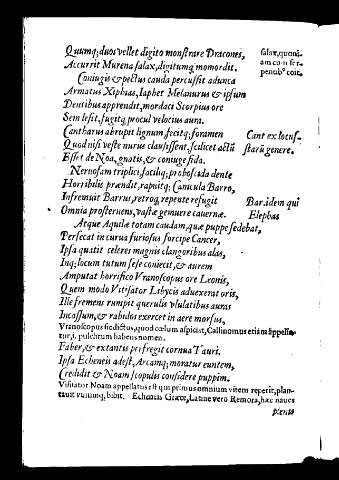 Quumq; duos vellet digito monstrare Dracones,
Accurrit Murena salax, digitumq momordit.
salax, quoni-
am cum ser-
pentib9 coit.
Coniugis & pectus cauda percussit adunca
Armatus Xiphias, Iaphet Melanurus & ipsum
Dentibus apprendit, mordaci Scorpius ore
Sem lesit, fugitq procul velocius aura.
Cantharus abrupit lignum, fecitq; foramen
Quod nisi veste nurus clausissent, scilicet actū
Esset de Noa, gnatis, & coniuge fida.
Cant ex locus-
starū genere.
Neruosam triplici, faciliq; proboscida dente
Horribilis prændit, rapuitq; Canicula Barro,
Infremuit Barrus, retroq repente refugit
Omnia prosternens, vastæ gemuere cauernæ.
Bar. idem qui
Elephas
Atque Aquilæ totam caudam, quæ puppe sedebat,
Persecat in curua furiosus forcipe Cancer,
Ipsa quatit celeres magnis clangoribus alas,
Inq; locum tutum sese coniecit, & aurem
Amputat horrifico Vranoscopus ore Leonis,
Quem modo Vitisator Libycis aduexerat oris,
Ille fremens rumpit querulis vlulatibus auras
Incassum, & rabidos exercet in aere morsus,
Vranoscopus sic dictus, quod cœlum aspiciat, Callinomus etiam appella-
tur, i. pulchrum habens nomen.
Faber, & extantis perfregit cornua Tauri.
Ipsa Echeneis adest, Arcamq; moratur euntem,
Credidit & Noam scopulis considere puppim.
Vitisator Noam appellatus est qui primus omnium vitem reperit, plan-
tauit vinumq; bibit. Echeneis Græce, Latine vero Remora, hæc naues
plenis